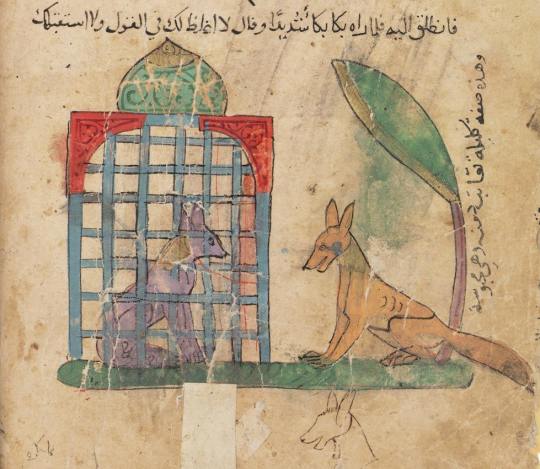 فانطلق اليه فلما راه بكا بكا شديدا وقال لا اغلظ لك في القول ولا استقبلك
وهذه صفه كليلة تعاتب دمنه وهي محبوسة